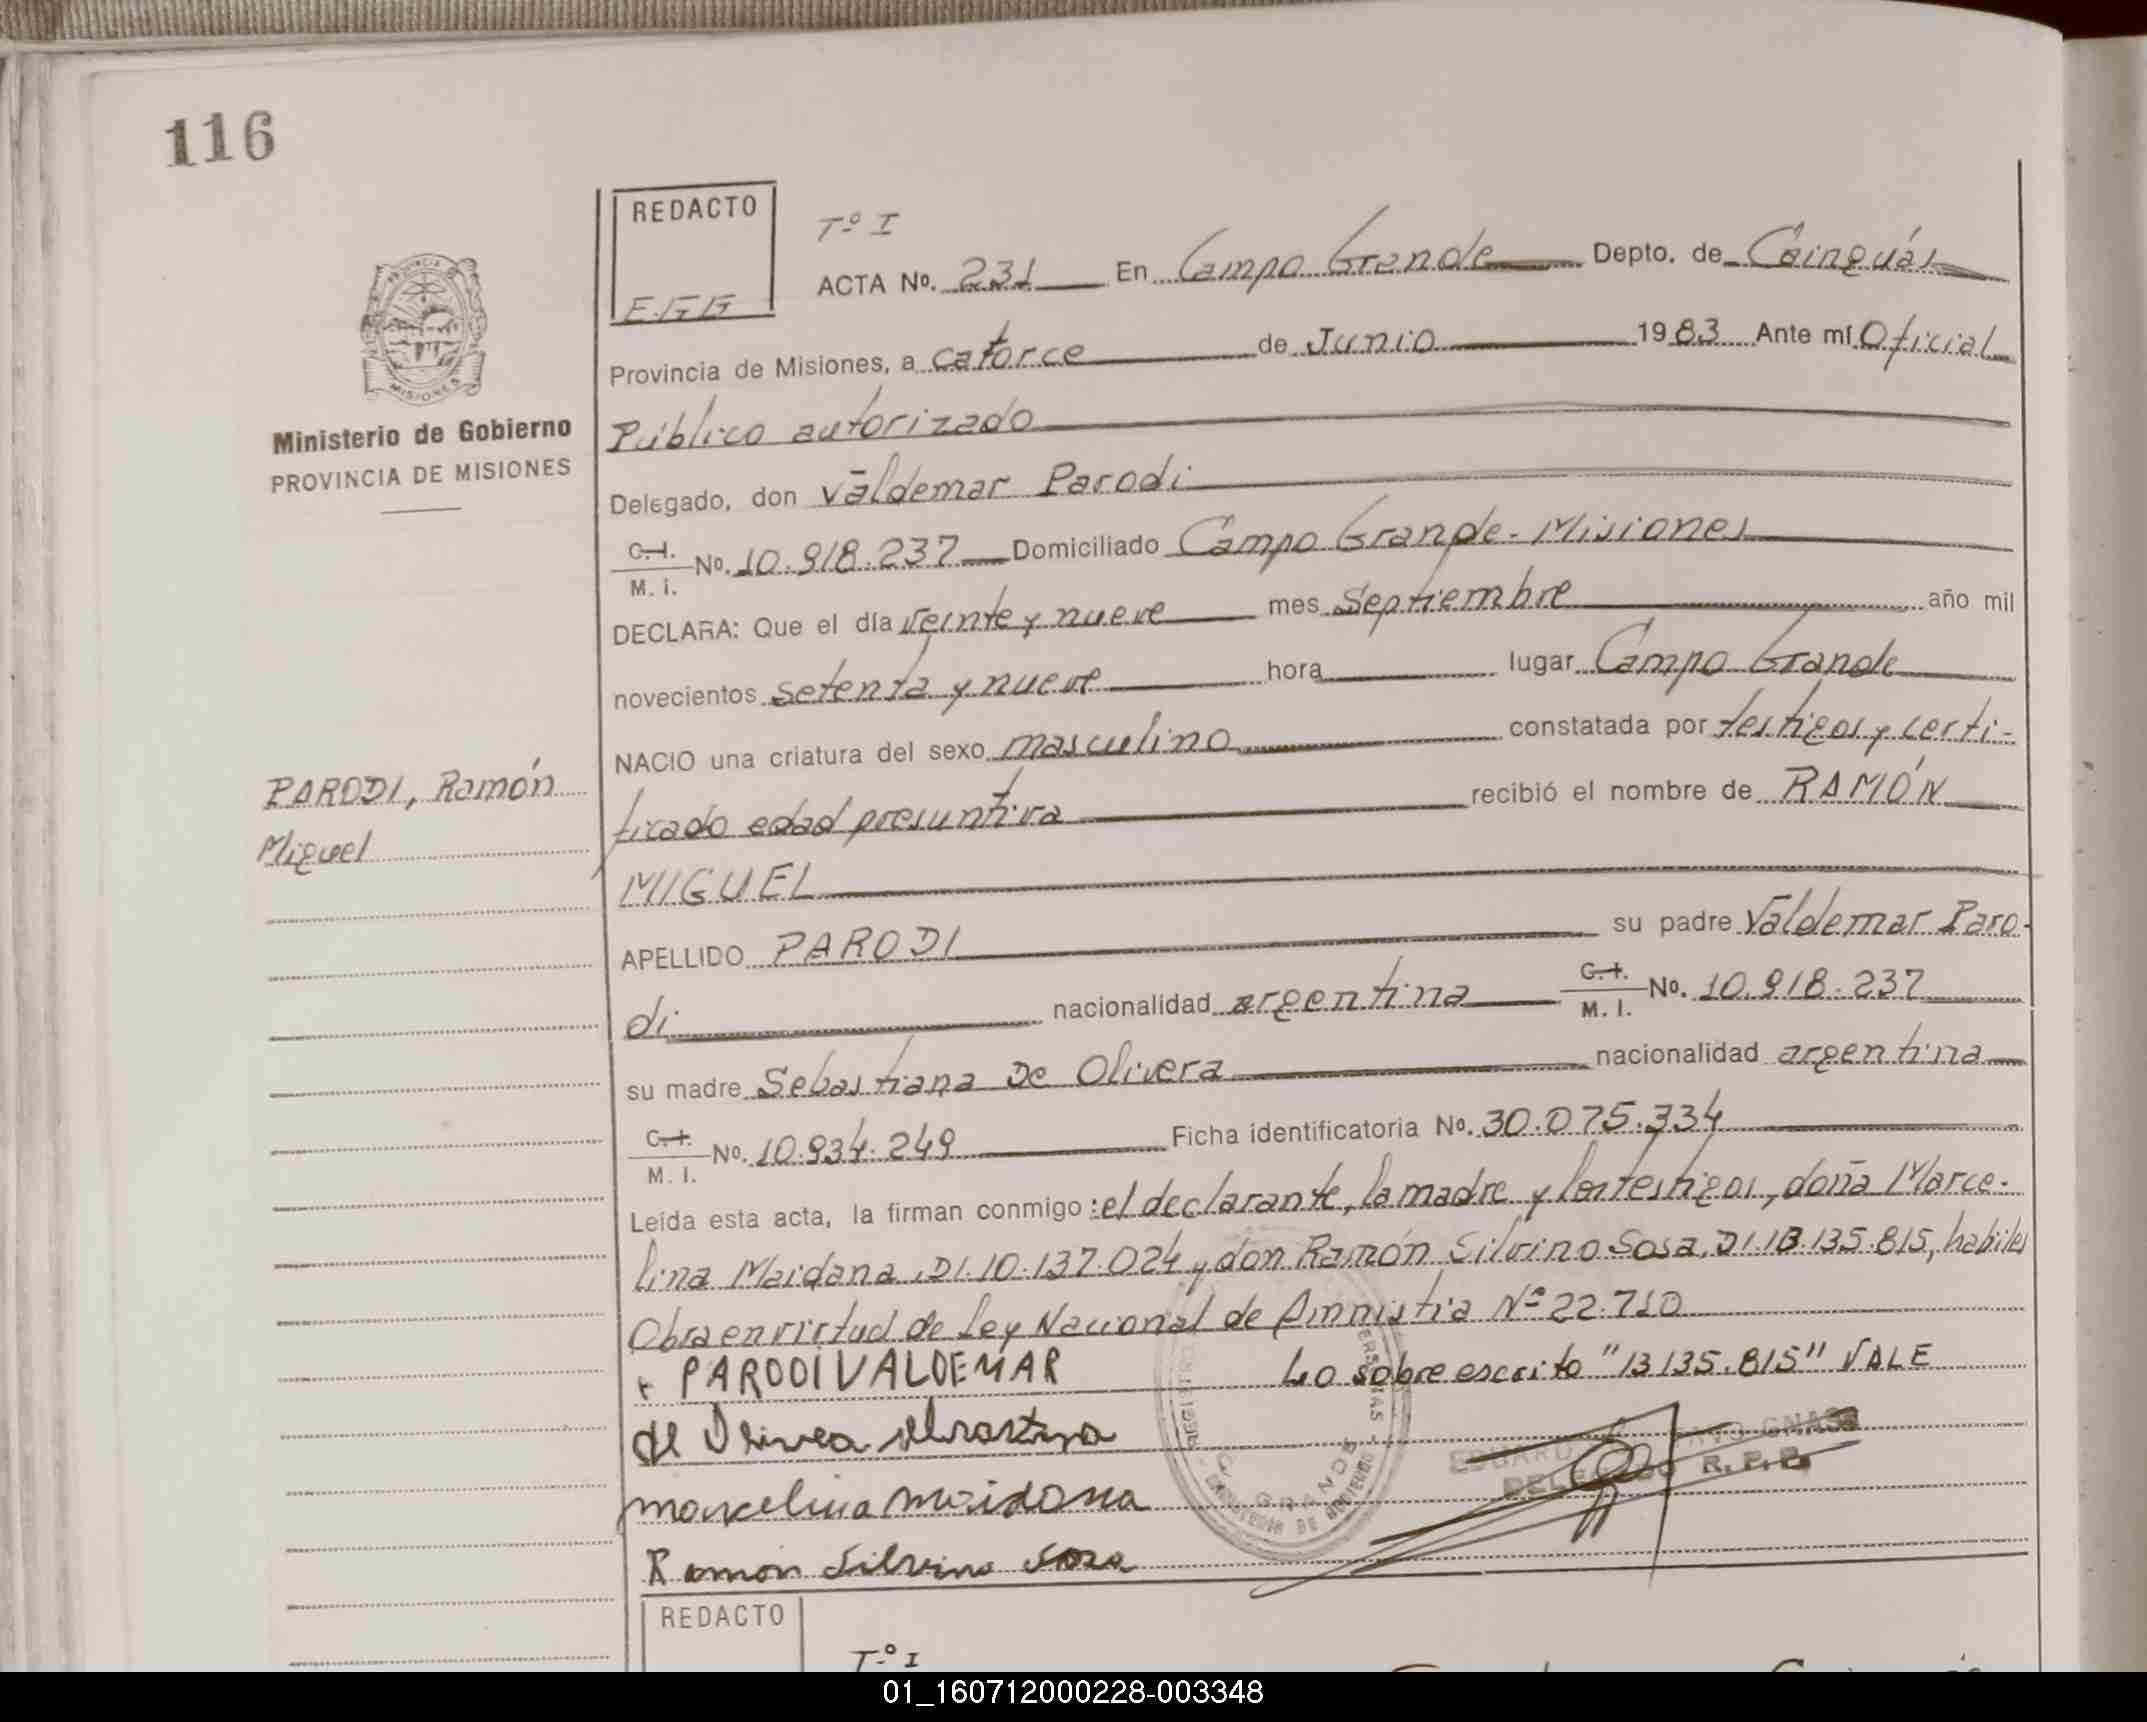 116
REDACTO
E.G.G
Tº I
ACTA Nº. 231 En Campo Grande Depto. de Cainguás
Provincia de Misiones, a catorce de Junio 1983 Ante mí Oficial
Público autorizado
Ministerio de Gobierno
PROVINCIA DE MISIONES
Delegado, don Valdemar Parodi
C. I. M. I. Nº. 10.918.237 Domiciliado Campo Grande - Misiones
DECLARA: Que el día veinte y nueve mes Septiembre año mil
novecientos setenta y nueve hora lugar Campo Grande
NACIO una criatura del sexo masculino constatada por testigos y certi-
PARODI, Ramón
Miguel
ficado edad presuntiva recibió el nombre de RAMÓN
MIGUEL
APELLIDO PARODI su padre Valdemar Paro-
di nacionalidad argentina C. I. M. I. Nº. 10.918.237
su madre Sebastiana De Olivera nacionalidad argentina
C. I. M. I. Nº. 10.934.249 Ficha identificatoria Nº. 30.075.334
Leída esta acta, la firman conmigo: el declarante, la madre y los testigos, doña Marce-
lina Maidana, DI. 10.137.024 y don Ramón Silvino Sosa, DI. 13.135.815, habiles
Obra en virtud de Ley Nacional de Amnistia Nº 22.710
PARODI VALDEMAR Lo sobre escrito "13135.815" VALE
de
marcelina maidana
GRANDE
DELEGADO R. P. P.
Ramon Silvino Sosa
REDACTO
Tº I
01_160712000228-003348